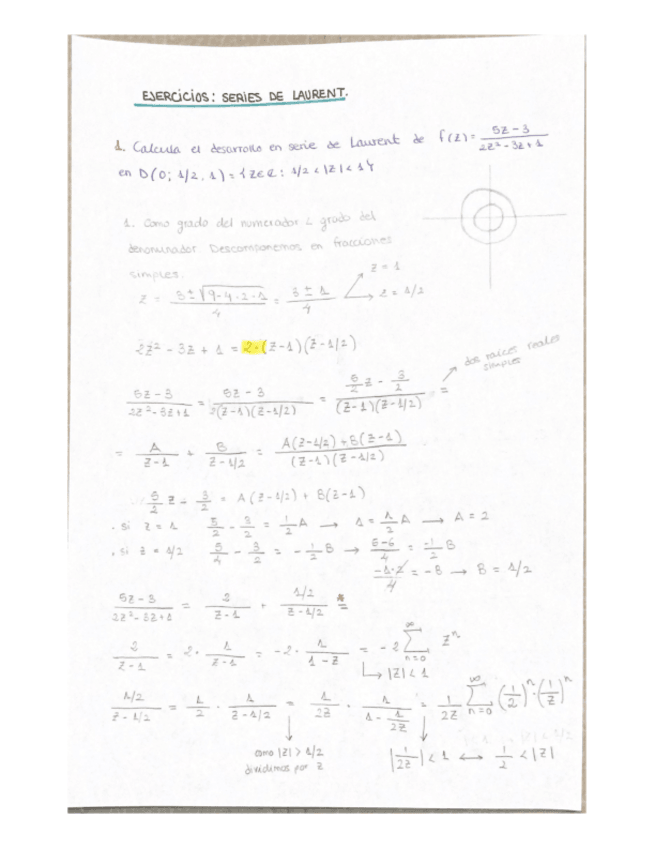 EJERCICIOS: SERIES DE LAURENT.
1. Calcula el desarrollo en serie de Laurent de f(z) = (5z-3)/(2z²-3z+1)
en D(0; 1/2, 1) = {z∈ℂ : 1/2 < |z| < 1}
1. Como grado del numerador < grado del
denominador. Descomponemos en fracciones
simples.
z = (3 ± √(9-4·2·1))/4 = (3 ± 1)/4 → z = 1 → z = 1/2
2z² - 3z + 1 = 2·(z-1)(z-1/2)
dos raíces reales
simples
(5z-3)/(2z²-3z+1) = (5z-3)/(2(z-1)(z-1/2)) = (5/2 z - 3/2)/((z-1)(z-1/2)) =
= A/(z-1) + B/(z-1/2) = (A(z-1/2)+B(z-1))/((z-1)(z-1/2))
5/2 z - 3/2 = A(z-1/2) + B(z-1)
· si z = 1 5/2 - 3/2 = 1/2 A → 1 = 1/2 A → A = 2
· si z = 1/2 5/4 - 3/2 = -1/2 B → (5-6)/4 = -1/2 B
(-1·2)/4 = -B → B = 1/2
(5z-3)/(2z²-3z+1) = 2/(z-1) + (1/2)/(z-1/2) =
2/(z-1) = 2· 1/(z-1) = -2· 1/(1-z) = -2 ∑_{n=0}^{∞} zⁿ
↳ |z| < 1
(1/2)/(z-1/2) = 1/2 · 1/(z-1/2) = 1/(2z) · 1/(1 - 1/(2z)) = 1/(2z) ∑_{n=0}^{∞} (1/2)ⁿ·(1/z)ⁿ
como |z| > 1/2
dividimos por z
|1/(2z)| < 1 ↔ 1/2 < |z|